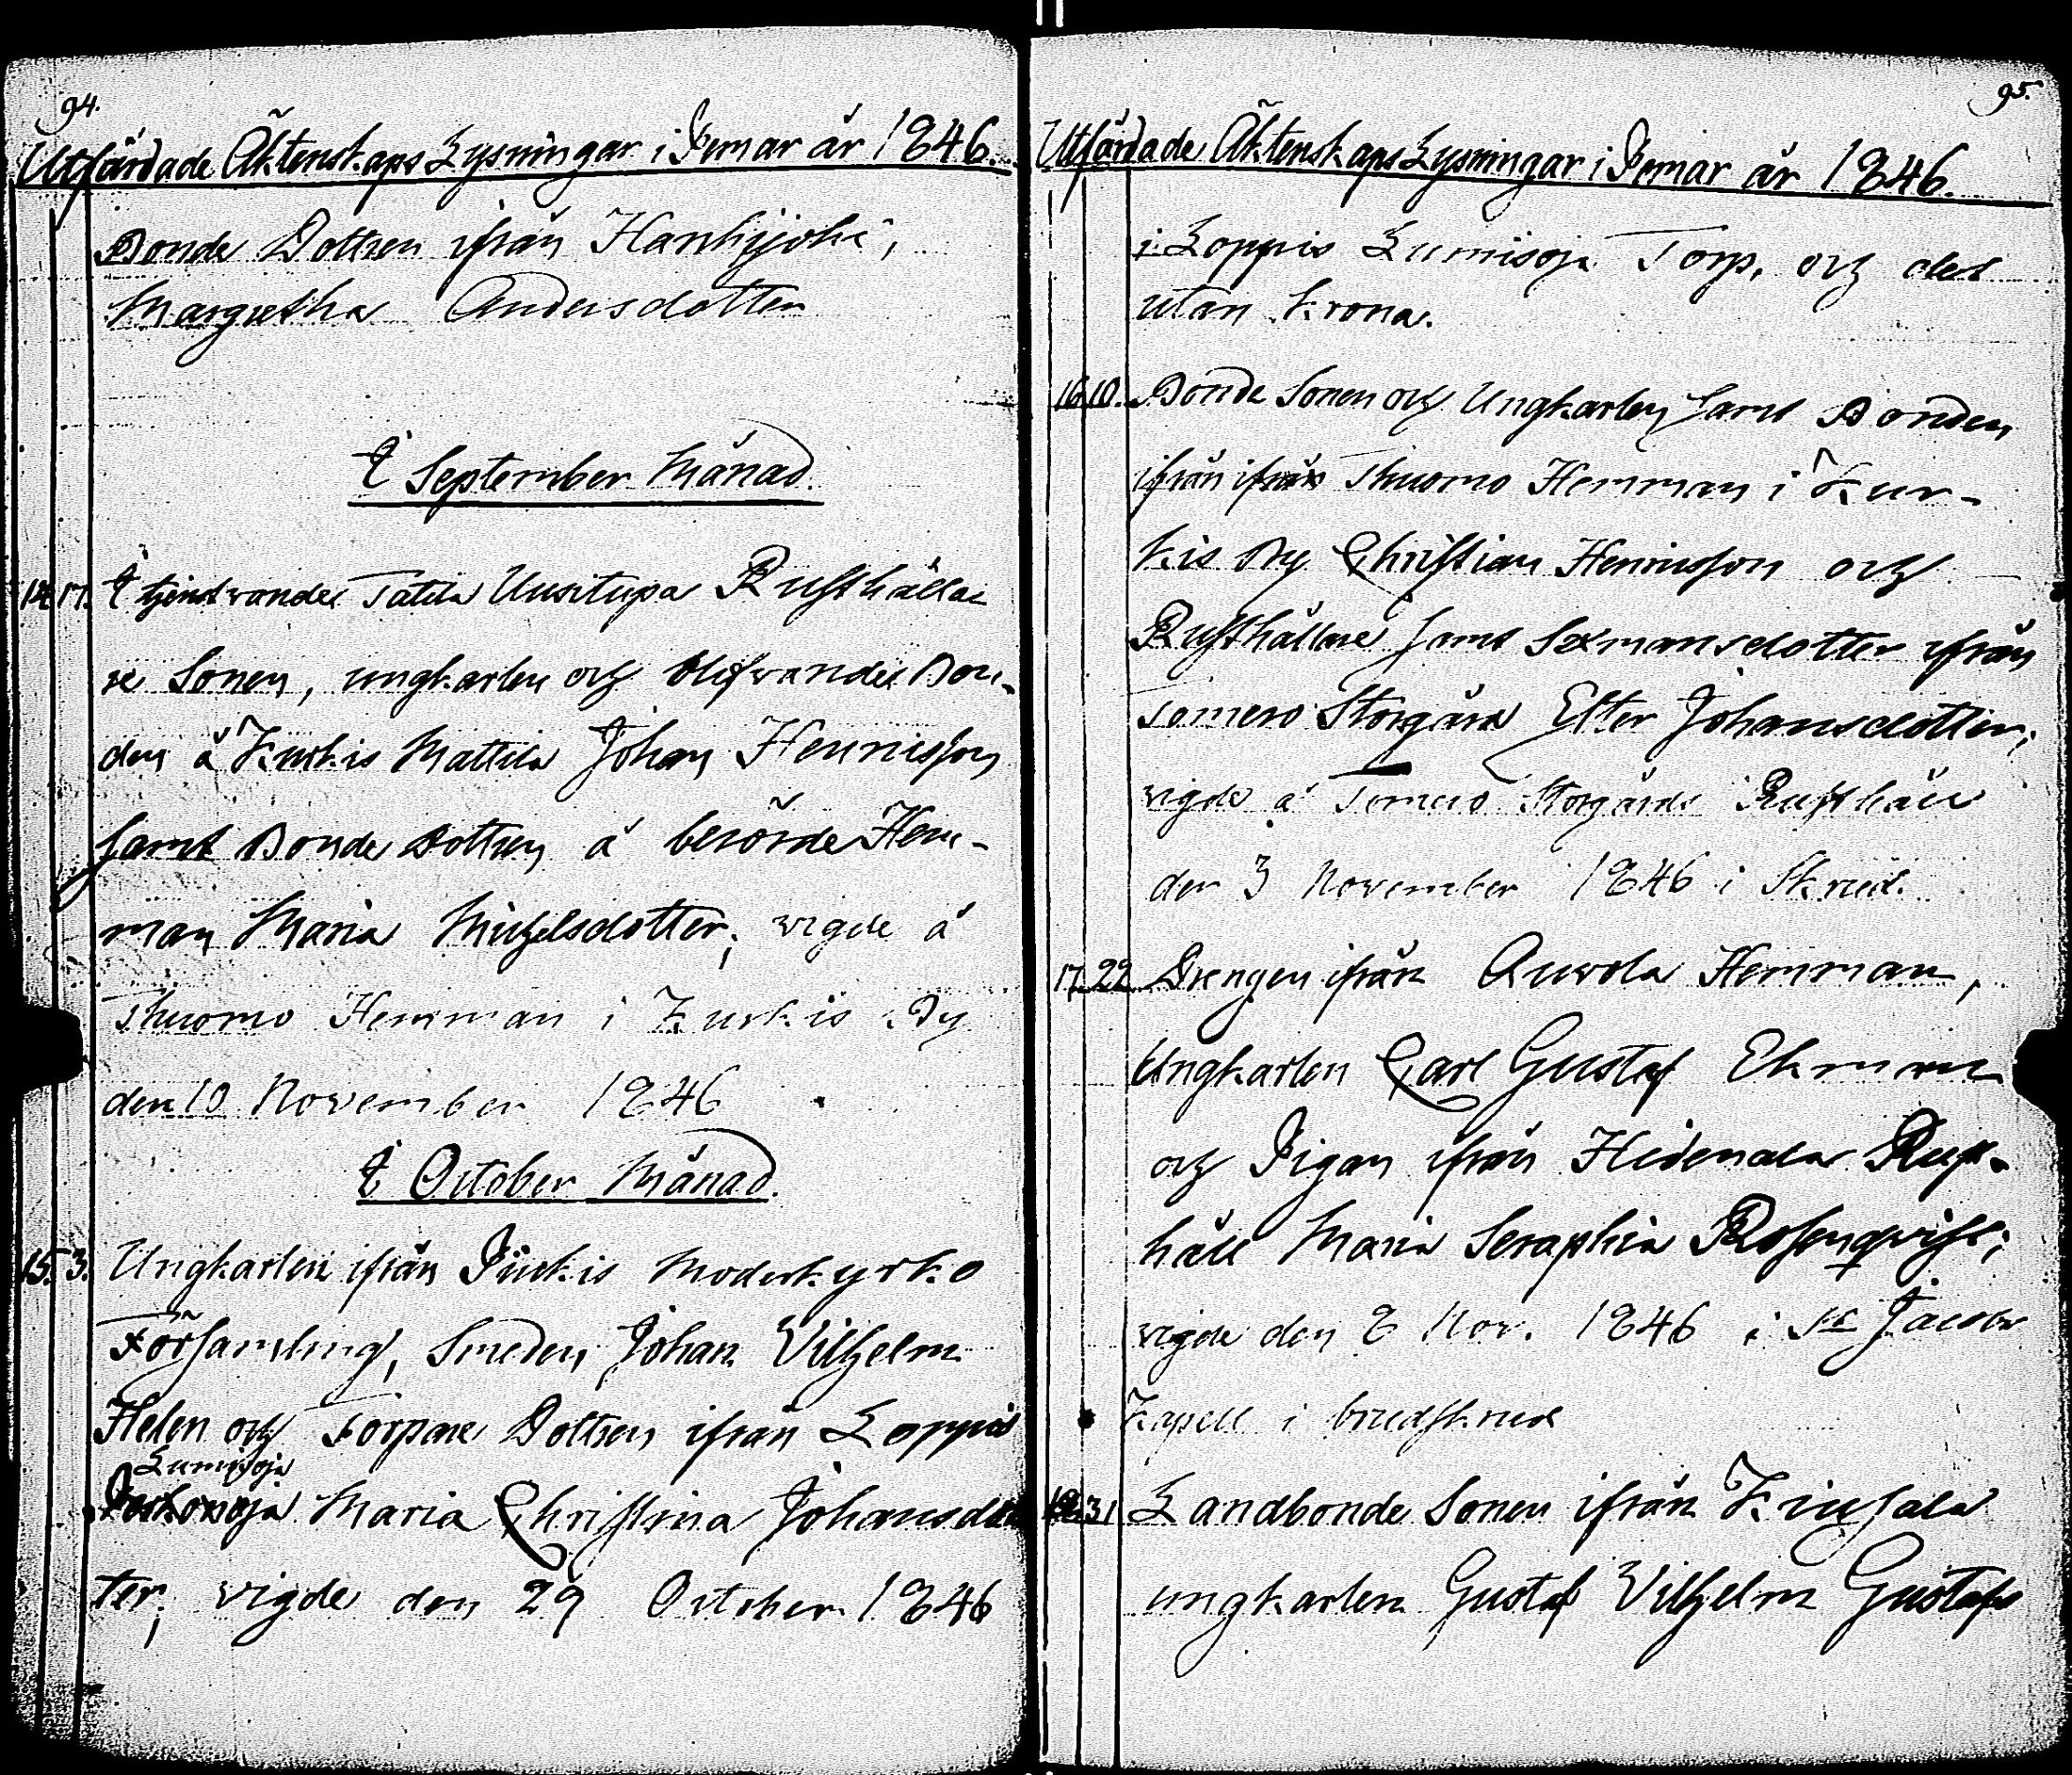 94.
Utfärdade Äktenskaps Lysningar i Pemar år 1846.
Bonde Dottren ifrån Hankijoki,
Margretha Andersdotter
I September Månad.
14. 17. I tjenst varande Tatila Uusitupa Rusthålla-
re Sonen, ungkarlen och blifvande Bon-
den å Kurkis Mattila Johan Henricsson
samt Bonde Dottren å berörde Hem-
man Maria Michelsdotter; vigde å
Thuomo Hemman i Kurkis By
den 10 November 1846
I October Månad.
15. 3. Ungkarlen ifrån Piickis Moderkyrko
Församling, Smeden Johan Vilhelm
Helen och Torpare Dottren ifrån Loppis
Lumisoja
Maria Christina Johansdot
ter; vigde den 29 October 1846
95.
Utfärdade Äktenskaps Lysningar i Pemar år 1846.
i Loppis Lumisoja Torp, och det
utan krona.
16. 10. Bonde Sonen och Ungkarlen samt Bonden
ifrån ifrån Thuomo Hemman i Kur-
kis By Christian Henricsson och
Rusthållare samt Sexmansdotter ifrån
Tomero Storgård Ester Johansdotter;
vigde å Tomero Storgårds Rusthåll
den 3 November 1846 i Skrud.
17. 22 Drengen ifrån Auvola Hemman,
Ungkarlen Carl Gustaf Ekman
och Pigan ifrån Hidenala Rust-
håll Maria Seraphia Rosenqvist;
vigde den 8 Nov. 1846 i St Jacobs
Kapell i brudskrud
18. 31 Landbonde Sonen ifrån Kiusala
ungkarlen Gustaf Vilhelm Gustafs